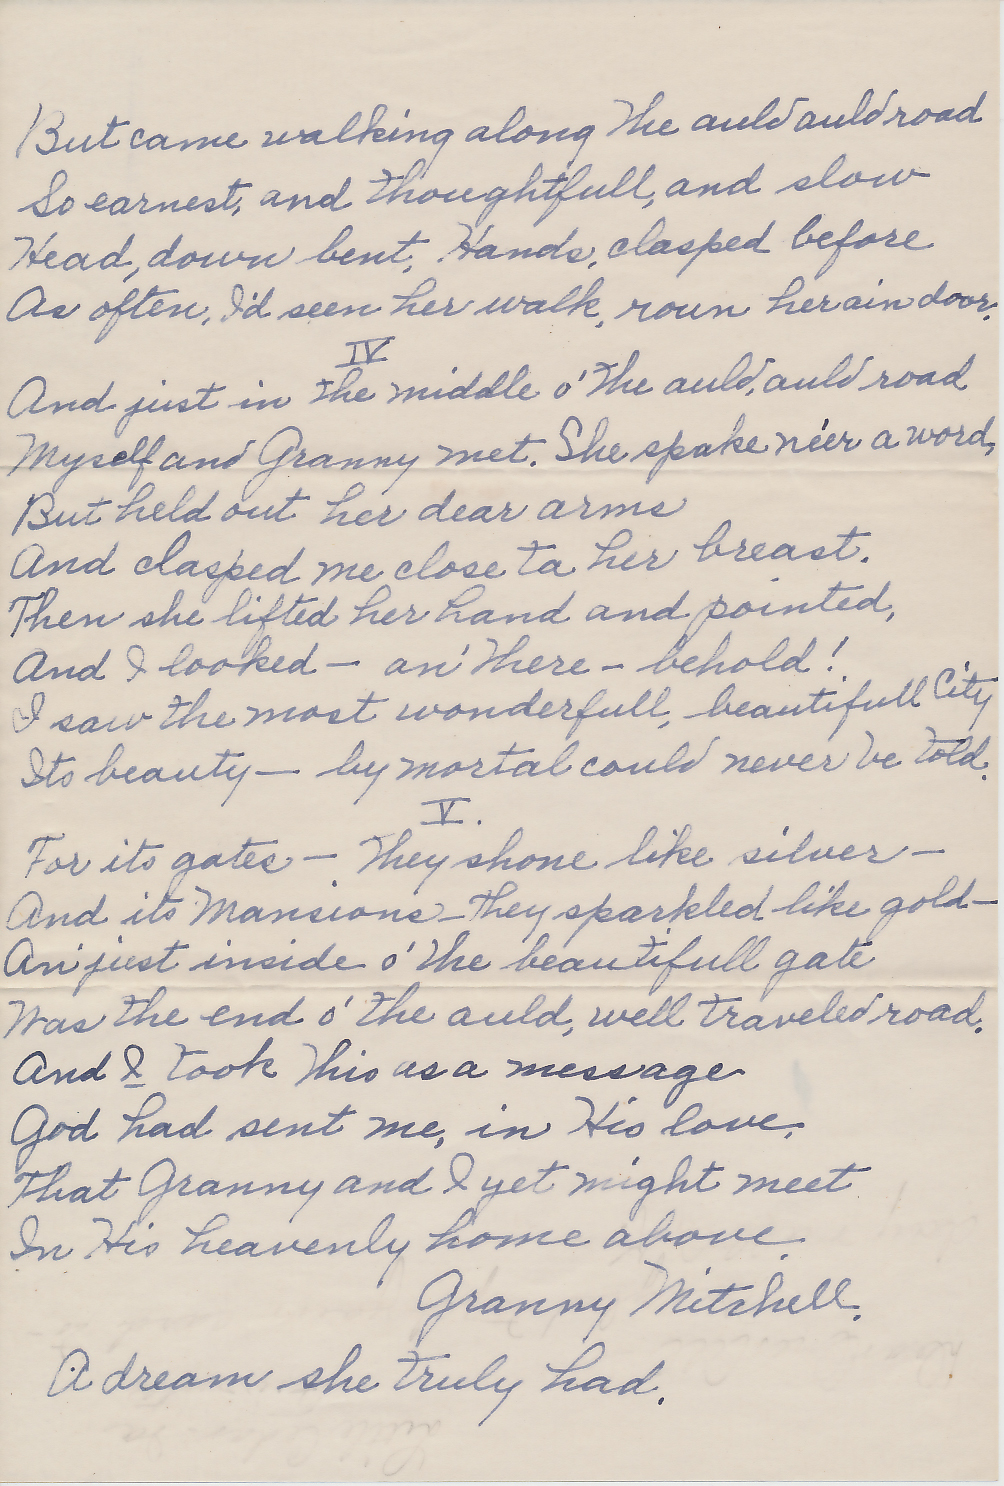 But came walking along the auld auld road
So earnest, and thoughtfull, and slow
Head, down bent, Hands, clasped before
As often, I'd seen her walk, roun her ain door.
IV
And just in the middle o' the auld, auld road
Myself and Granny met. She spake néer a word,
But held out her dear arms
And clasped me close ta her breast.
Then she lifted her hand and pointed,
And I looked — an' there — behold!
I saw the most wonderfull, beautifull City
Its beauty — by mortal could never be told.
V.
For its gates — they shone like silver —
And its Mansions — they sparkled like gold —
An' just inside o' the beautifull gate
Was the end o' the auld, well traveled road.
And I took this as a message
God had sent me, in His love,
That Granny and I yet might meet
In His heavenly home above.
Granny Mitchell.
A dream she truly had.